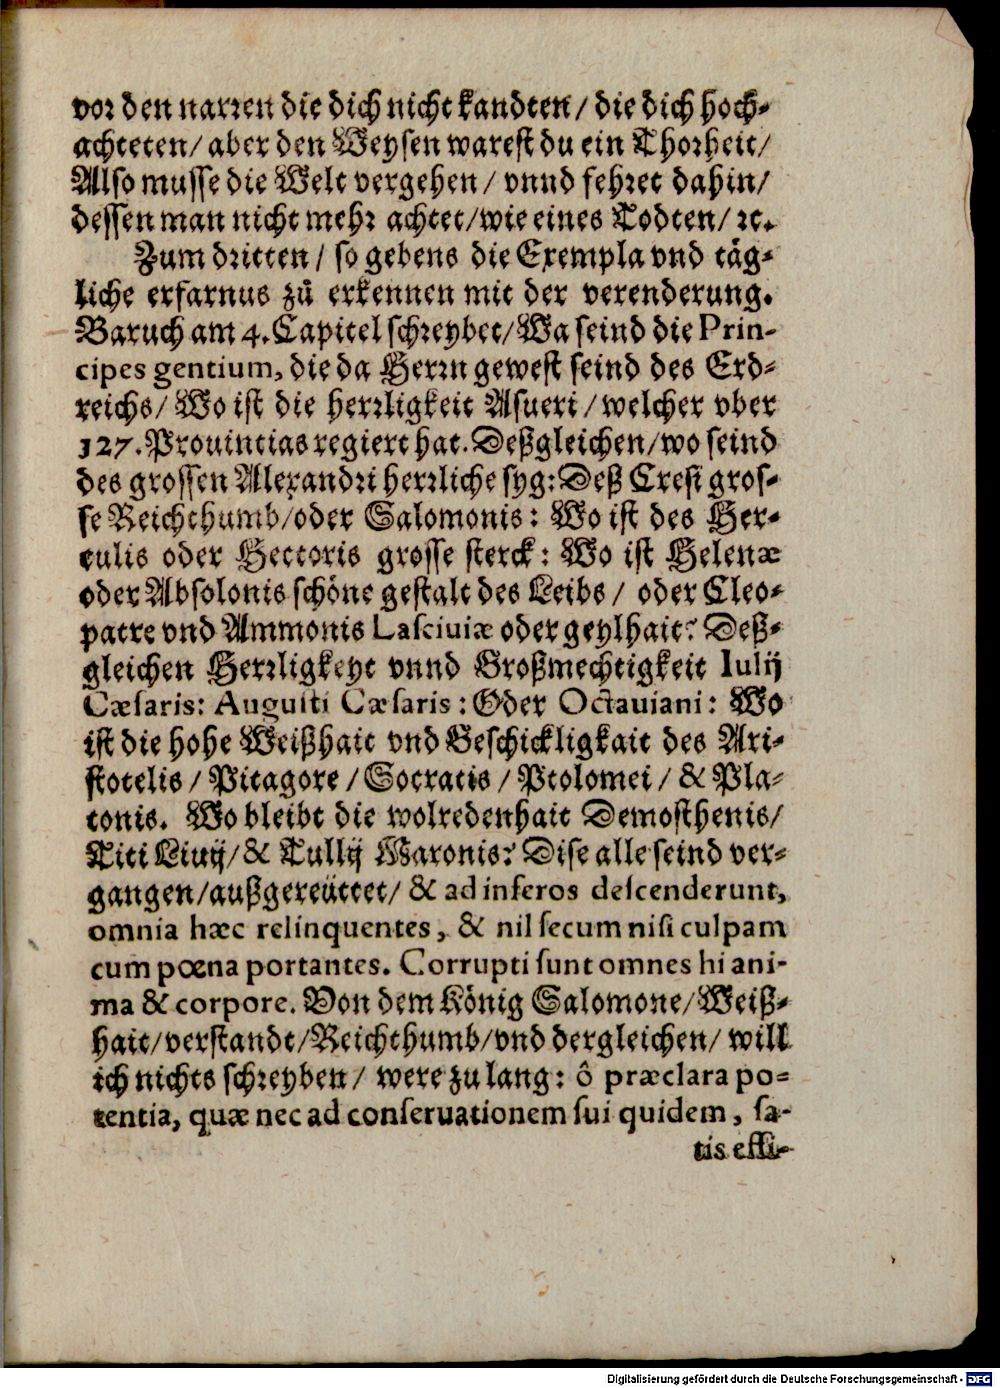 vor den narren die dich nicht kandten / die dich hoch-
achteten / aber den Weysen warest du ein Thorheit /
Also musse die Welt vergehen / vnnd fehret dahin /
dessen man nicht mehr achtet / wie eines Todten / ꝛc.
Zum dritten / so gebens die Exempla vnd täg-
liche erfarnus zů erkennen mit der verenderung.
Baruch am 4. Capitel schreybet / Wa seind die Prin-
cipes gentium, die da Herrn gewest seind des Erd-
reichs / Wo ist die herrligkeit Asueri / welcher vber
127. Prouintias regiert hat. Deßgleichen / wo seind
des grossen Alexandri herrliche syg: Deß Cresi gros-
se Reichthumb / oder Salomonis: Wo ist des Her-
culis oder Hectoris grosse sterck: Wo ist Helenæ
oder Absolonis schöne gestalt des Leibs / oder Cleo-
patre vnd Ammonis Lasciuiæ oder geylhait? Deß-
gleichen Herrligkeyt vnnd Großmechtigkeit Iulij
Cæsaris: Augusti Cæsaris: Oder Octauiani: Wo
ist die hohe Weißhait vnd Geschickligkait des Ari-
stotelis / Pitagore / Socratis / Ptolomei / & Pla-
tonis. Wo bleibt die wolredenhait Demosthenis /
Titi Liuij / & Tullij Maronis? Dise alle seind ver-
gangen / außgereüttet / & ad inferos descenderunt,
omnia hæc relinquentes, & nil secum nisi culpam
cum pœna portantes. Corrupti sunt omnes hi ani-
ma & corpore. Von dem König Salomone / Weiß-
hait / verstandt / Reichthumb / vnd dergleichen / will
ich nichts schreyben / were zu lang: ô præclara po-
tentia, quæ nec ad conseruationem sui quidem, sa-
tis effi-
Digitalisierung gefördert durch die Deutsche Forschungsgemeinschaft - DFG